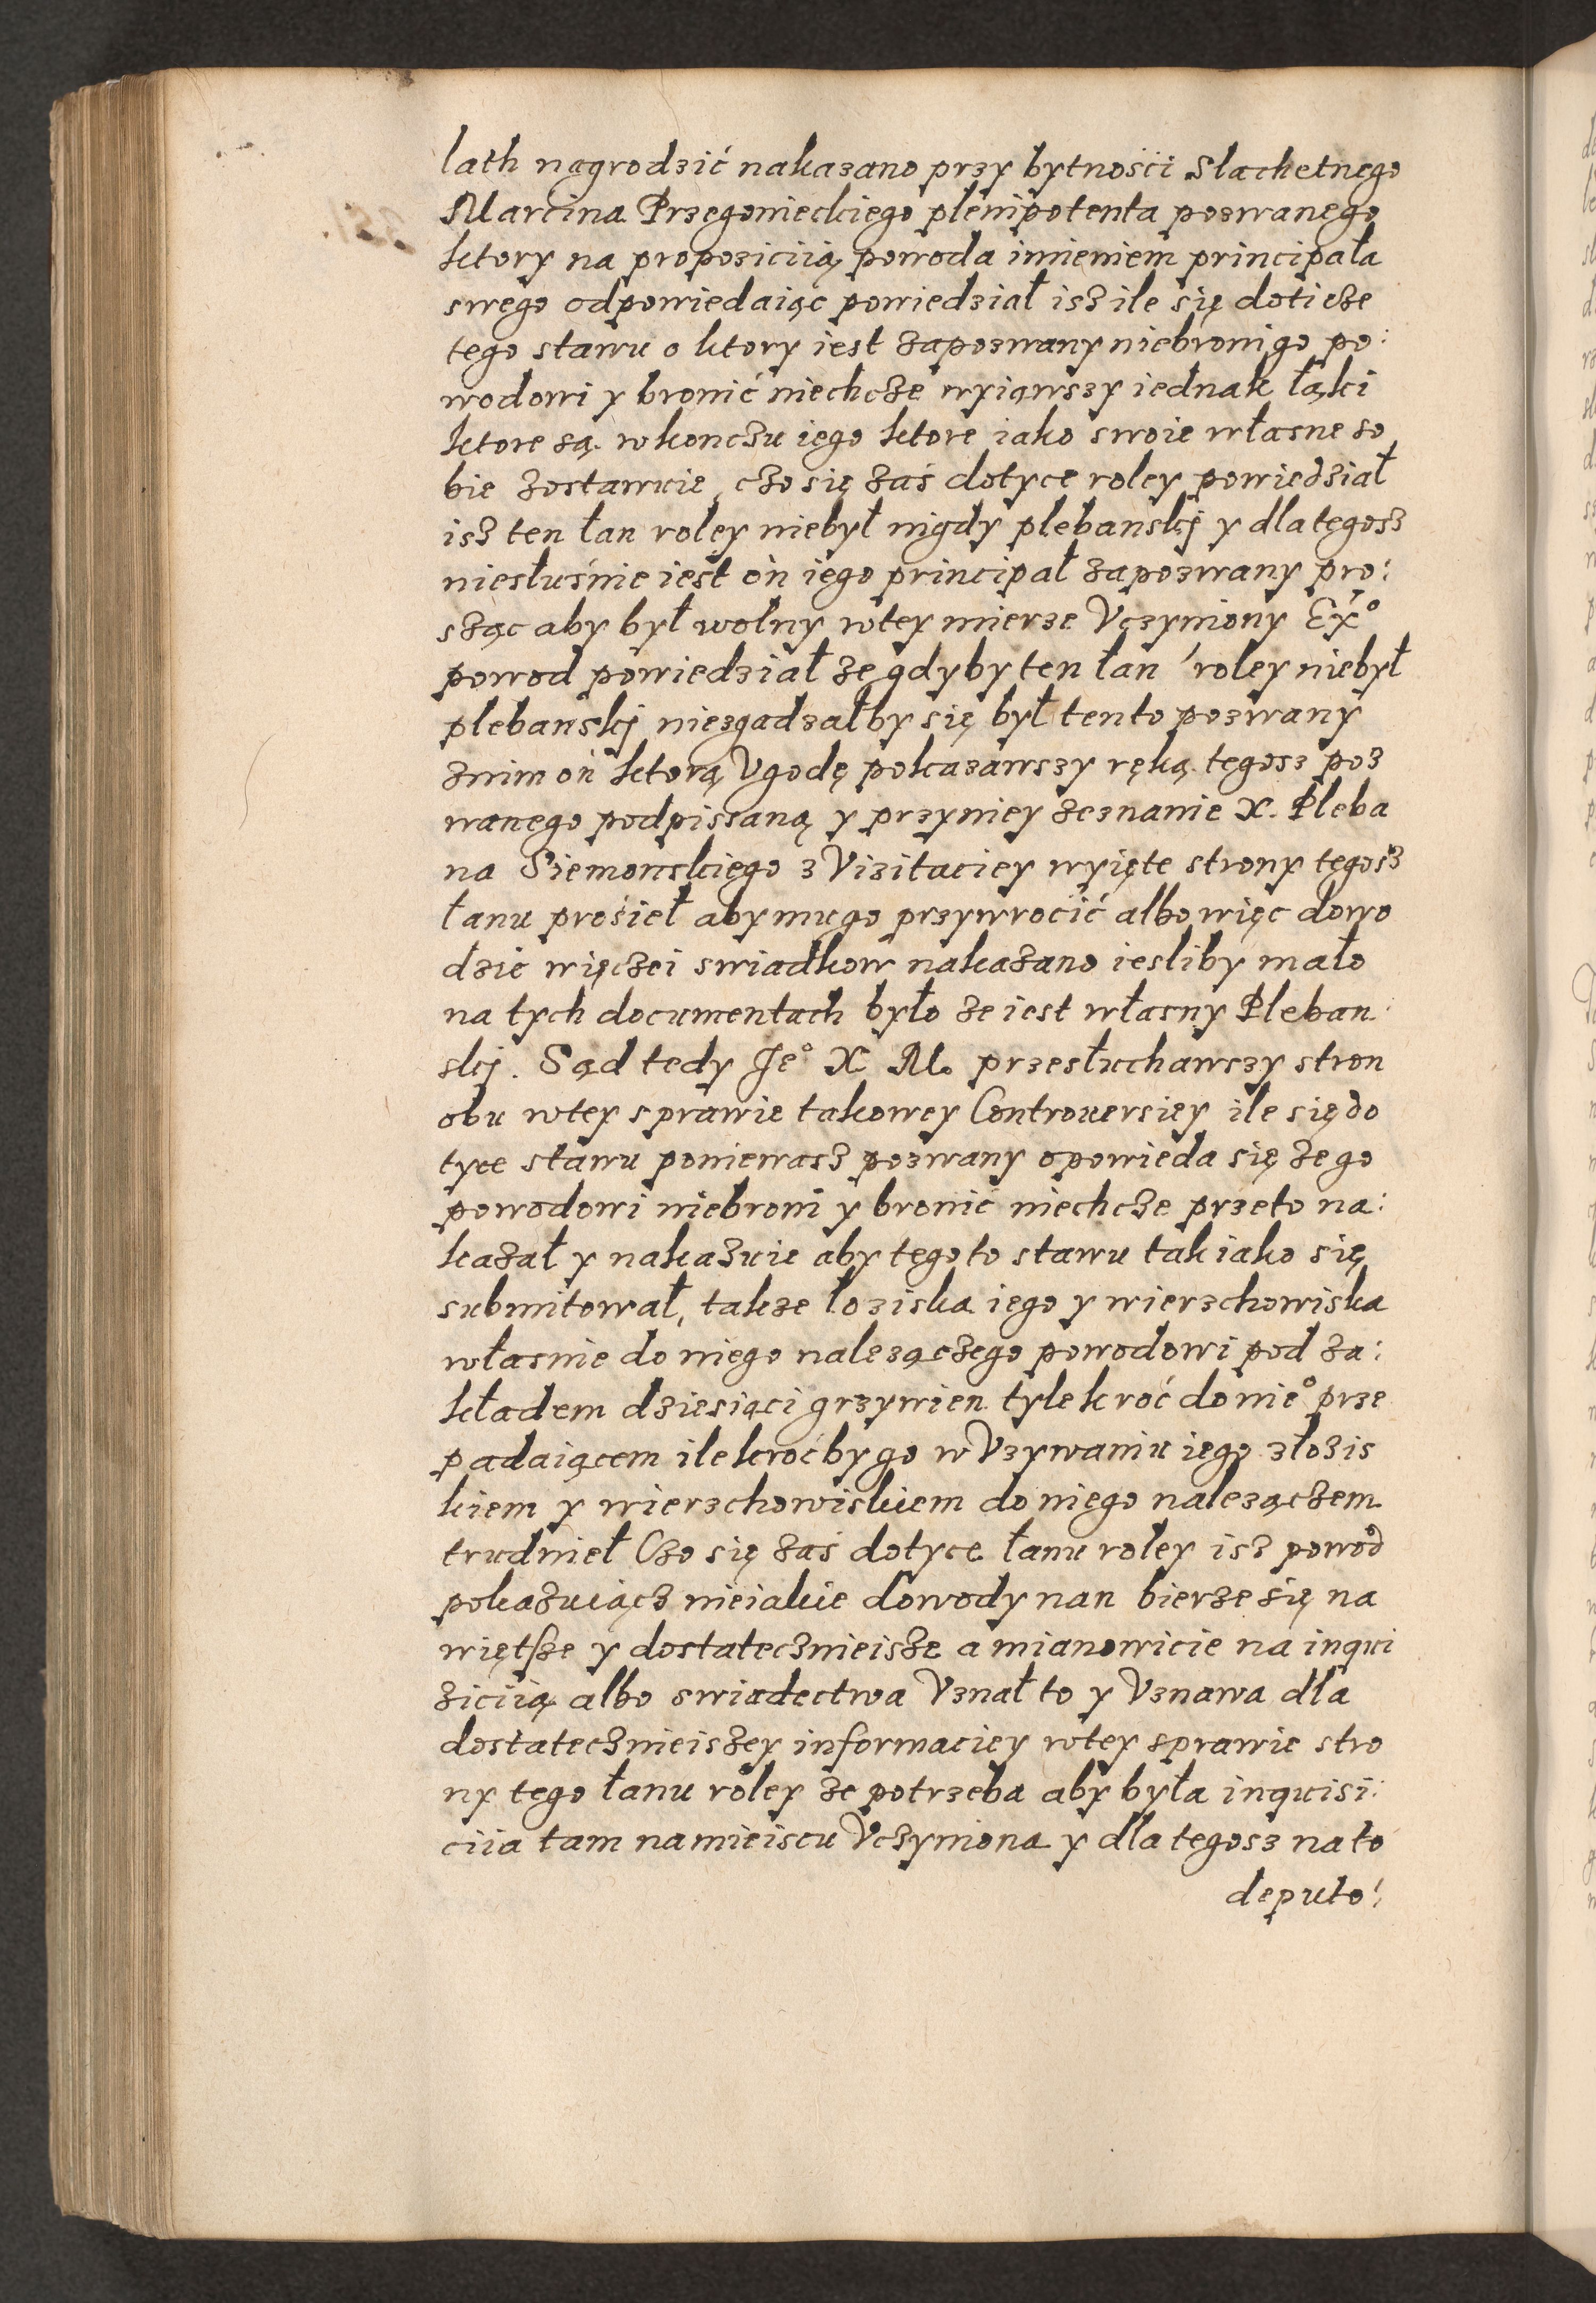 lath nagrodzić nakazano przy bytnosći Slachetnego
Marcina Przegonieckiego plenipotenta pozwanego
ktory na propoziciią powoda imieniem principała
swego odpowiedaiąc powiedział isz ile się doticze
tego stawu o ktory iest zapozwany niebronigo po:
wodowi y bronić niechcze wyiąwszy iednak łąki
ktore są w konczu iego ktore iako swoie własne so
bie zostawuie, czo się zaś dotyce roley powiedział
isz ten łan roley niebył nigdy plebanskj y dla tegosz
niesłuśnie iest on iego principał zapozwany pro:
sząc aby był wolny wtey mierze Vczyniony Exº
powod powiedział ze gdyby ten łan roley niebył
plebanskj niezgadzałby się był tento pozwany
znim on ktorą Vgodę pokazawszy ręką tegosz poz
wanego podpissaną y przyniey zeznanie X. Pleba
na Siemonskiego z Vizitaciey wyięte strony tegosz
łanu prosieł abymugo przywroćić albowięc dowo
dzic więczei swiadkow nakazano iesliby mało
na tych documentach było ze iest własny Pleban:
skj. Sąd tedy Jeº X M. przesłuchawszy stron
obu wtey sprawie takowey Controuersiey ile się do
tyce stawu poniewasz pozwany opowieda się ze go
powodowi niebroni y bronić niechcze przeto na:
kazał y nakazuie aby tego to stawu tak iako się
submitował, takze łoziska iego y wierzchowiska
własnie do niego nalezączego powodowi pod za:
kładem dziesiąci grzywien tylekroć do nieº prze
padaiącem ilekroćby go w Vzywaniu iego złozis
kiem y wierzchowiskiem do niego nalezączem
trudnieł Czo się zaś dotyce łanu roley isz powod
pokazuiącz nieiakie dowody nan bierze się na
więtsze y dostatecznieisze a mianowicie na inqui
ziciią albo swiadectwa Vznał to y Vznawa dla
dostateczneiszey informaciey wtey sprawie stro
ny tego łanu roley ze potrzeba aby była inquisi:
ciia tam namieiscu Vczyniona y dla tegosz na to
deputo: